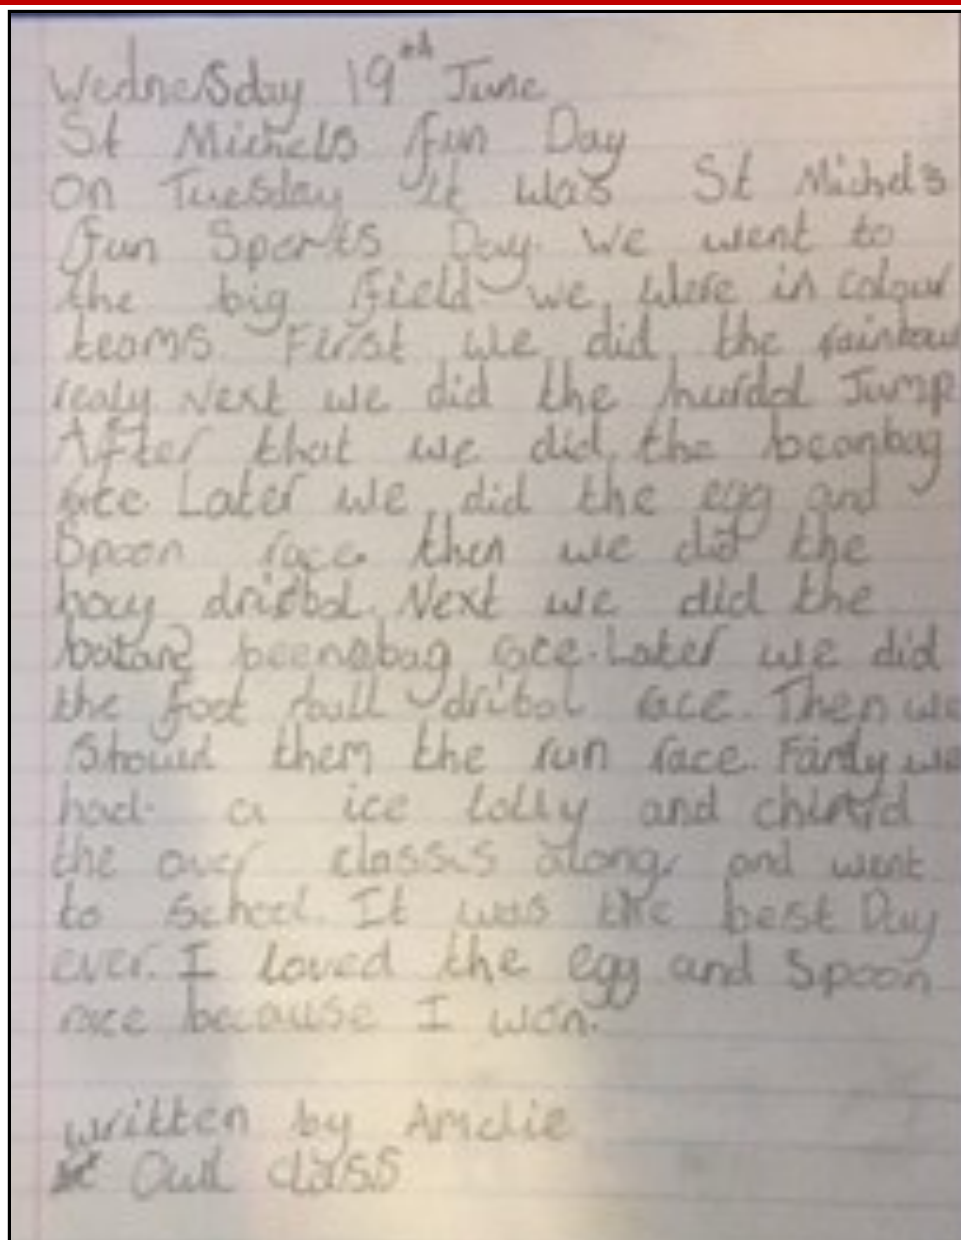 Wednesday 19th June
St Michels fun Day
On Tuesday it was St Michels
fun Sports Day. We went to
the big field we were in colour
teams First we did the rainbow
realy Next we did the hurdol Jump
After that we did the beanbag
race. Later we did the egg and
Spoon race. then we did the
hocy dribbol. Next we did the
beenabag race. Later we did
the foot ball dribol race. Then we
Should them the run race. we
had a ice lolly and
the over classis along and went
to School. It was the best Day
ever. I loved the egg and Spoon
race because I won.
written by Amelie
Owl class